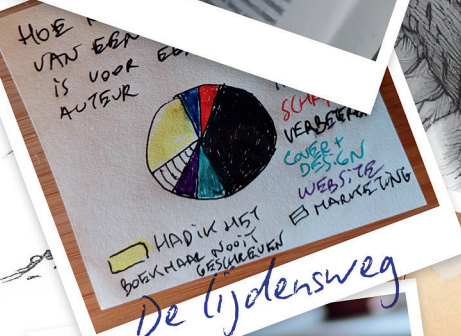 HOE
VAN EEN
IS VOOR EE
AUTEUR
SCH
VERBETER
COVER +
DESIGN
WEBSITE
MARKETING
HAD IK HET
BOEK MAAR NOOIT
GESCHREVEN
De lijdensweg